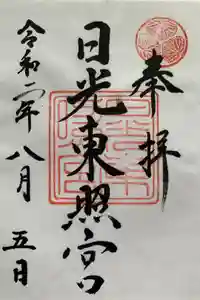 奉拝
日光東照宮
令和二年八月
五日